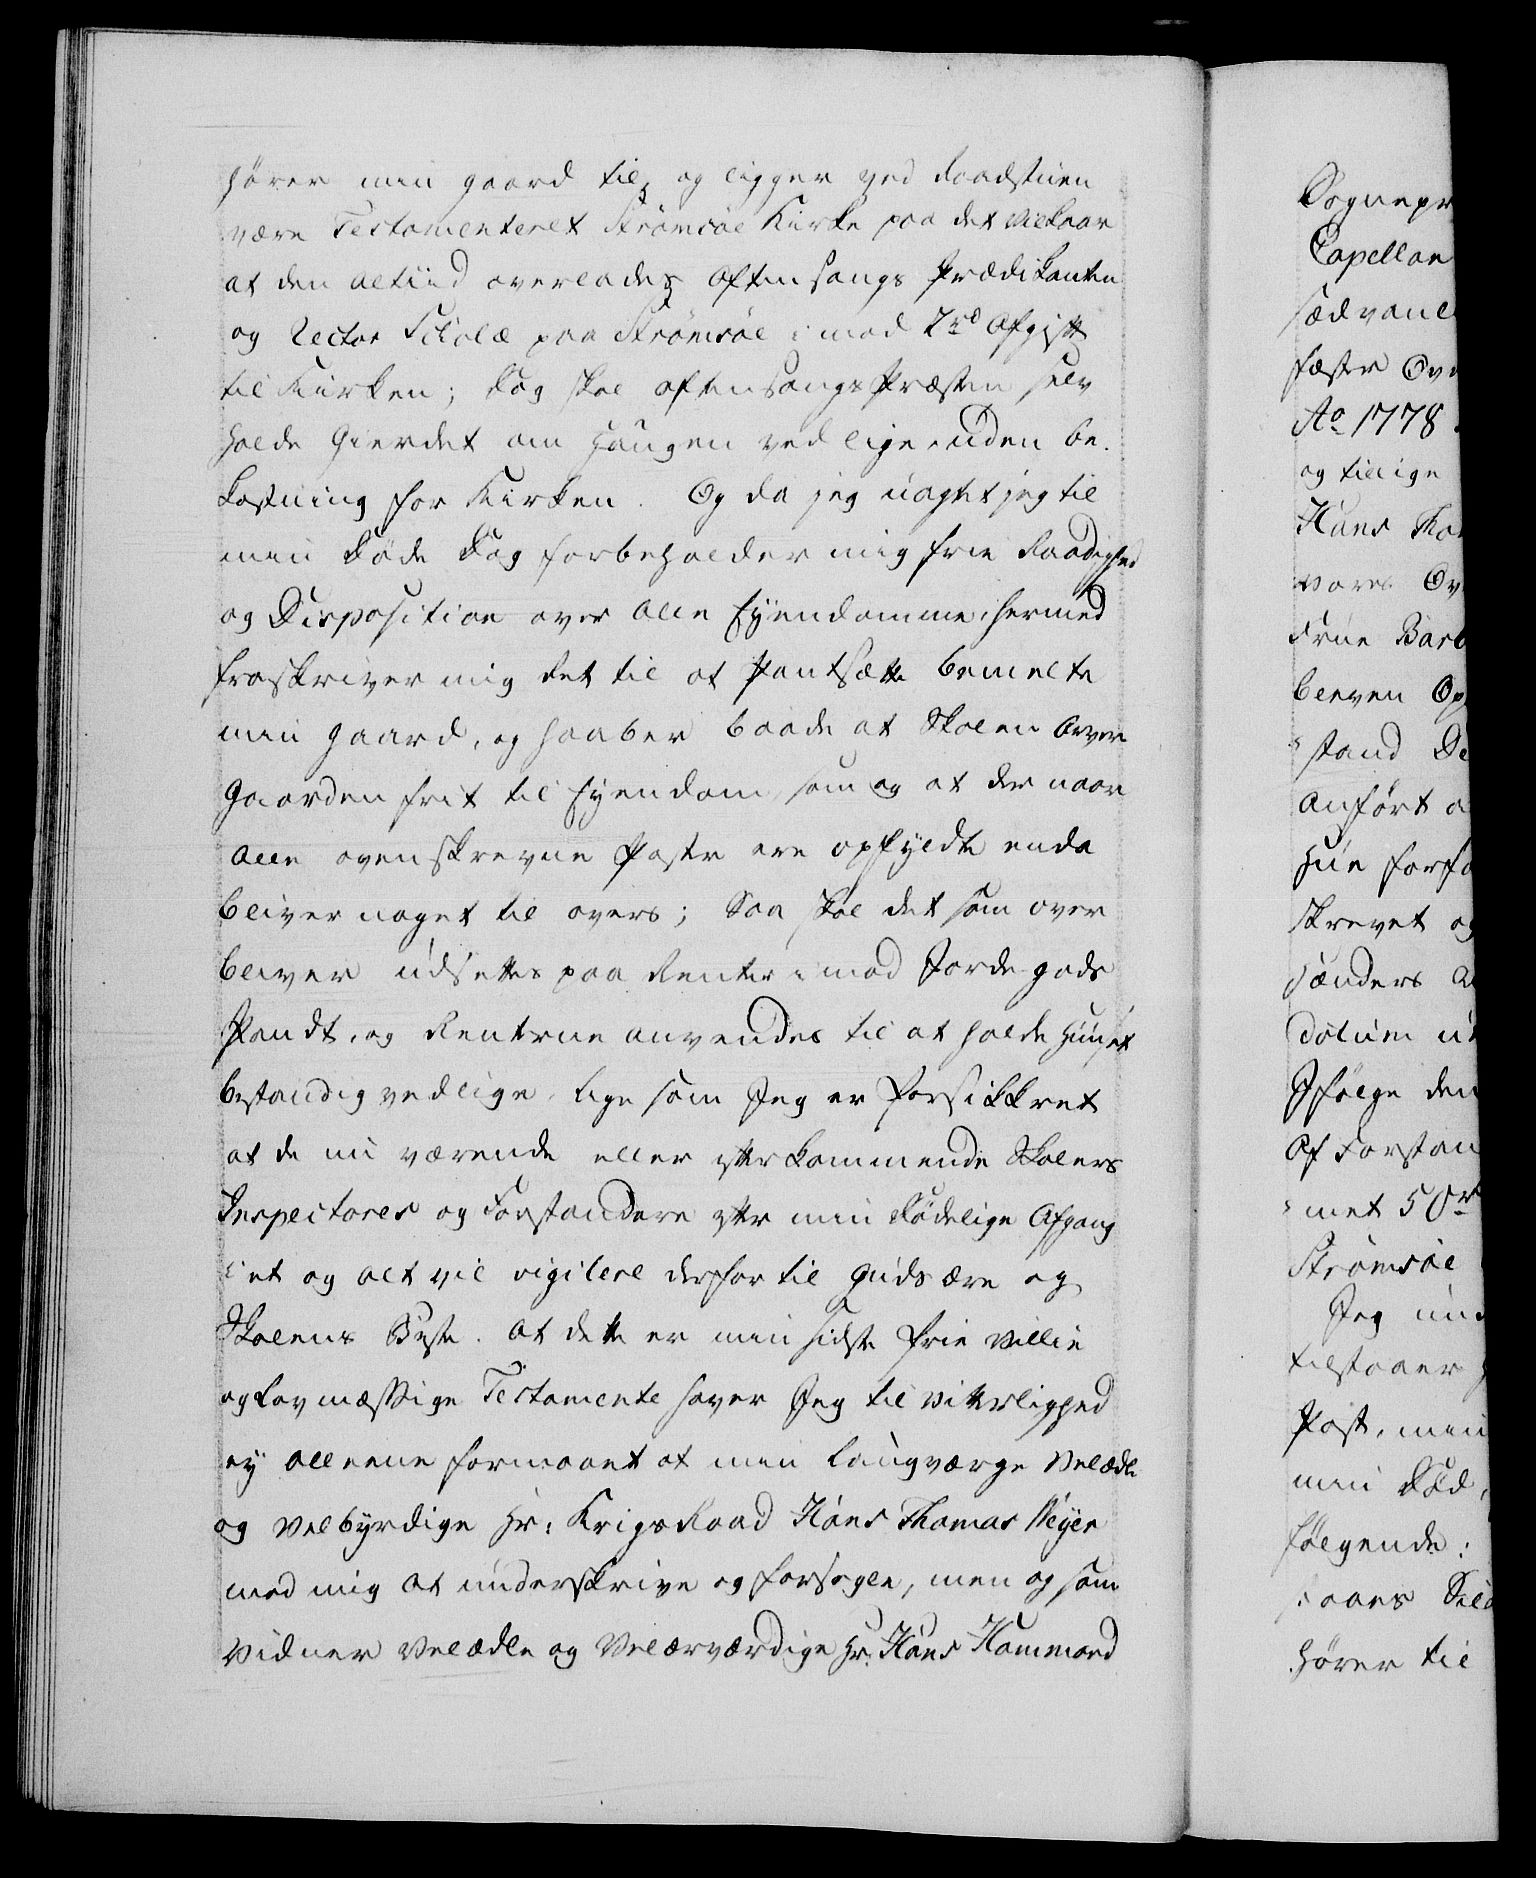 hører min gaard til, og ligger ved Raadstuen
være Testamenteret Strømsøe Kirke paa det Vilkaar
at den altiid overlades Aftensangs Prædikanten
og Rector Scholæ paa Strømsøe imod 2rd Afgift
til Kirken; dog skal aftensangs Præsten selv
holde Gierdet om Haugen ved lige, uden be-
kostning for Kirken. Og da jeg uagtet jeg til
min Døde Dag forbeholder mig frie Raadighed
og Disposition over alle Eyendomme, hermed
fraskriver mig det til at Pantsætte bemelte
min Gaard, og haaber baade at Skolen Arver
Gaarden frit til Eyendom, som og at der naar
alle ovenskrevne Poster ere opfyldte enda
bliver noget til overs; Saa skal det som over
bliver udsettes paa Renter imod Jorde-gods
Pandt, og Renterne anvendes til at holde Huuset
bestandig vedlige, lige som Jeg er forsikkret
at de nu værende eller efterkommende Skolers
Inspectores og Forstandere efter min Dødelige Afgang
i et og alt vil vigilere derfor til Guds ære og
Skolens Beste. At dette er min sidste frie Villie
og Lovmæssige Testamente haver Jeg til Vitterlighed
ey alleene formaaet at min Laugværge Velædle
og Velbyrdige Hr: Krigs Raad Hans Thomas Meyer
med mig at underskrive og forsegle, men og som
Vidner Velædle og Velærværdige Hr. Hans Hammond
Sognepr
Capellan
sædvanl
fæster Ov
Ao 1778.
og tillige
Hans Tho
vores Ov
Frue Barb
bleven Op
stand De
anført a
Hun forfa
skrevet og
hænders
dotum
Ifølge den
Af Forstan
met 50r
Strømsøe
Jeg und
tilstaaer
Post, men
min Død,
følgende:
hører til